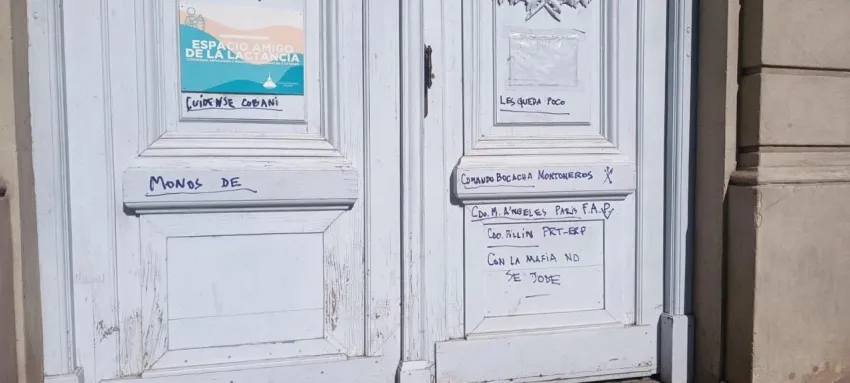 ESPACIO AMIGO
DE LA LACTANCIA
CUIDENSE COBANI
MONOS DE
LES QUEDA POCO
COMANDO BOCACHA MONTONEROS
CDO. M. ANGELES PARIS F.A.P
CDO. PILLIN PRT-ERP
CON LA MAFIA NO
SE JODE